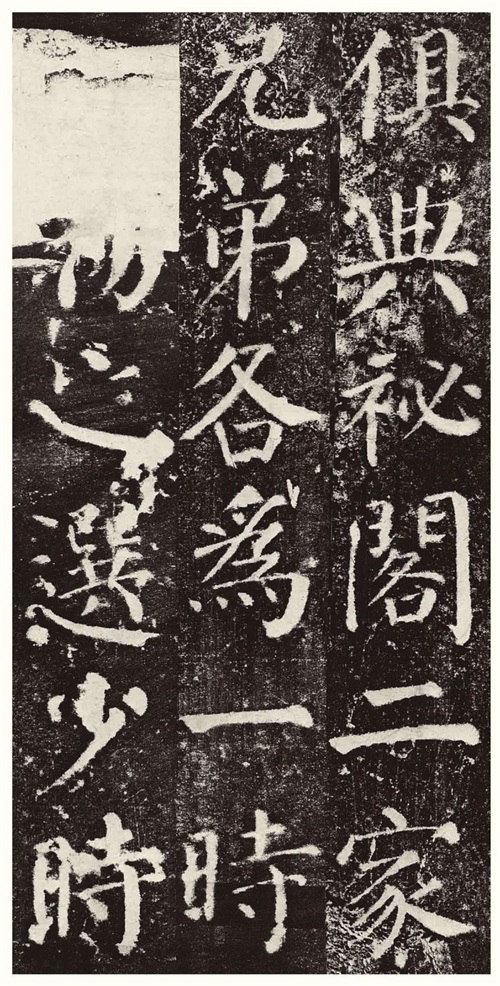 俱典祕閣二家
兄弟各爲一時
之選少時